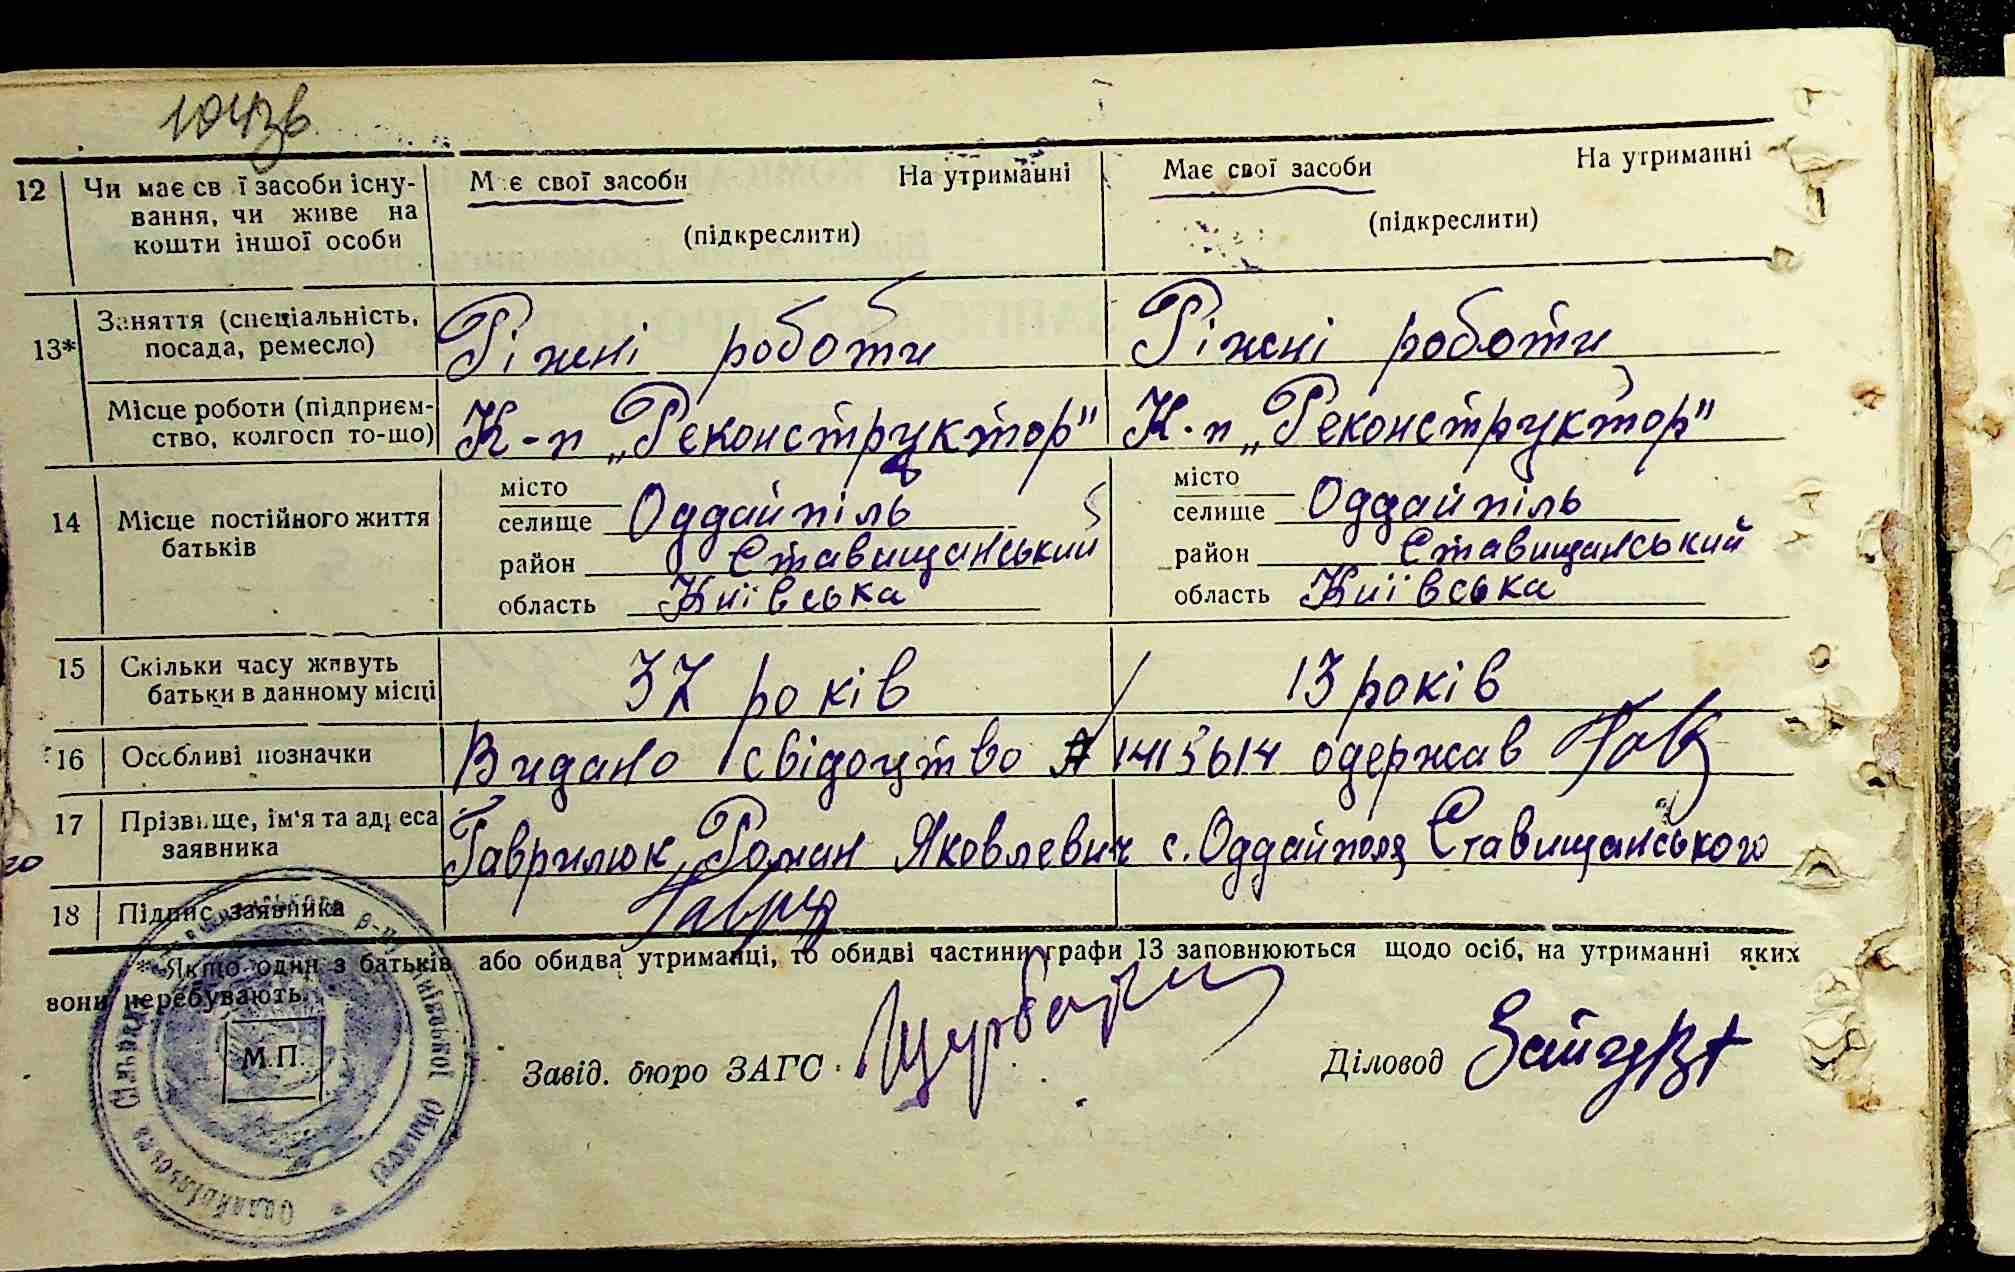 104зв
12 Чи має св ї засоби існу- М є свої засоби На утриманні Має свої засоби На утриманні
вання, чи живе на (підкреслити) (підкреслити)
кошти іншої особи
13* Заняття (спеціальність, Ріжні роботи Ріжні роботи
посада, ремесло)
Місце роботи (підприєм- К-п „Реконструктор" К-п „Реконструктор"
ство, колгосп то-що)
14 Місце постійного життя місто місто
батьків селище Оддайпіль селище Оддайпіль
район Ставищанський район Ставищанський
область Київська область Київська
15 Скільки часу живуть 37 років 13 років
батьки в данному місці
16 Особливі позначки Видано свідоцтво № 1413614 одержав Гав
17 Прізвище, ім'я та адреса Гаврилюк Роман Яковлевич с. Оддайполя Ставищанського
заявника
18 Підпис заявника Гаврил
* Якщо один з батьків або обидва утриманці, то обидві частини графи 13 заповнюються щодо осіб, на утриманні яких
вони перебувають.
М.П.
Завід. бюро ЗАГС Діловод
Сільрада р-ну Київської Області